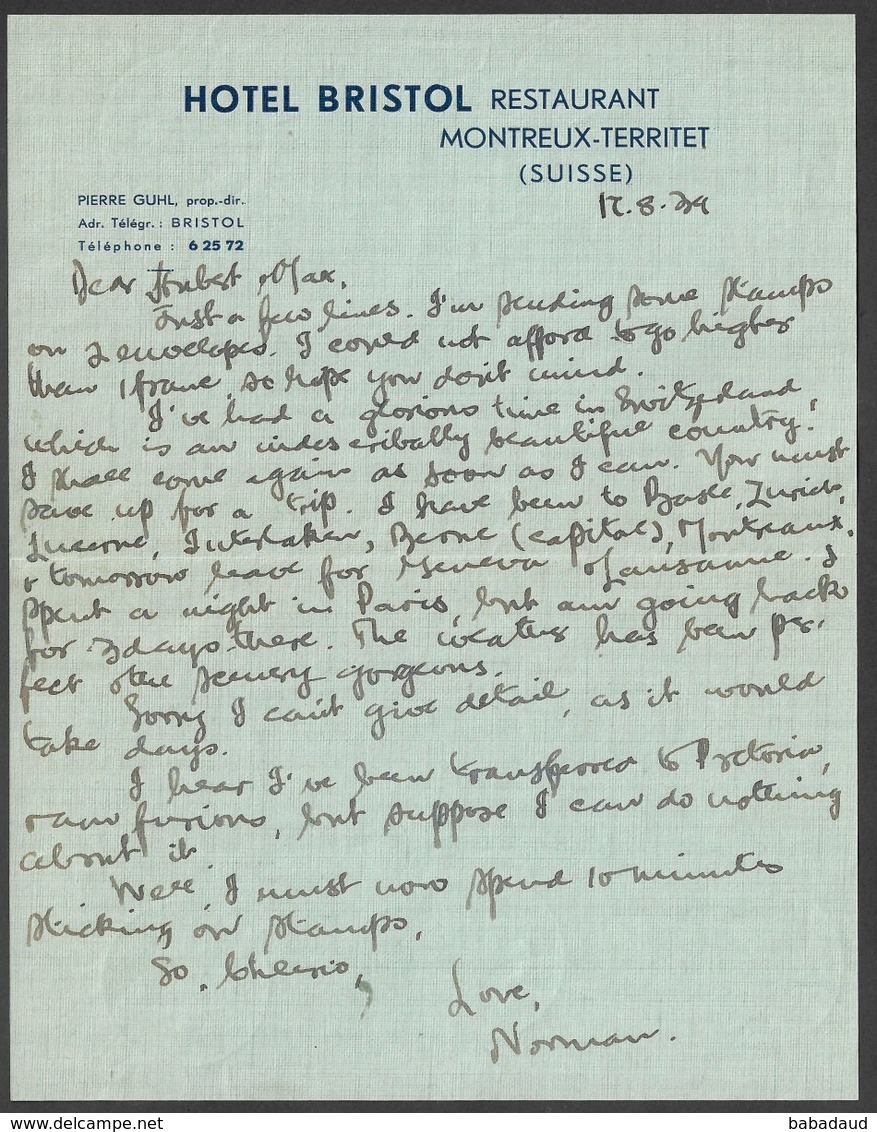 HOTEL BRISTOL RESTAURANT
MONTREUX-TERRITET
(SUISSE)
PIERRE GUHL, prop.-dir.
Adr. Télégr.: BRISTOL
Téléphone : 6 25 72
8.39
Dear & Max,
Just a few lines. I'm sending some stamps
on 2 envelopes. I could not afford to go higher
than 1 franc, so hope you don't mind.
I've had a glorious time in Switzerland,
which is an indescribably beautiful country.
I shall come again as soon as I can. You must
save up for a trip. I have been to Basle, Zurich,
Lucerne, Interlaken, Berne (capital), Montreaux,
& tomorrow leave for Geneva & Lausanne. I
spent a night in Paris, but am going back
for 3 days there. The weather has been per-
fect & the scenery gorgeous.
Sorry I can't give detail, as it would
take days.
I hear I've been transferred to Pretoria,
& am furious, but suppose I can do nothing
about it.
Well, I must now spend 10 minutes
sticking on stamps.
So, Cheerio,
Love,
Norman.
delcampe.net
babadaud